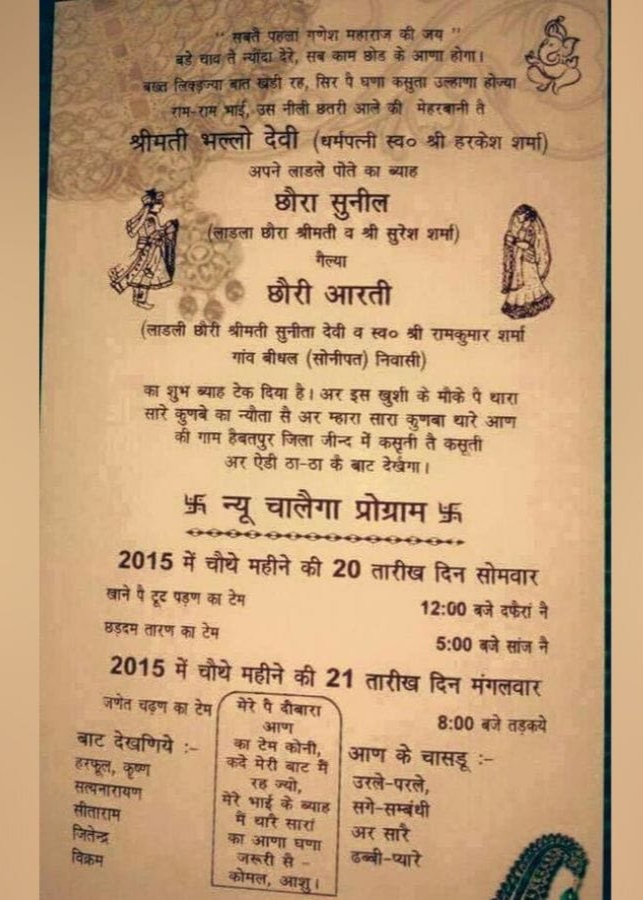 " सबतै पहलां गणेश महाराज की जय "
बडे चाव तै न्यौंदा देरे, सब काम छोड के आणा होगा।
बख्त लिकड़ज्या बात खडी रह, सिर पै घणा कसुता उल्हाणा होज्या
राम-राम भाई, उस नीली छतरी आले की मेहरबानी तै
श्रीमती भल्लो देवी (धर्मपत्नी स्व० श्री हरकेश शर्मा)
अपने लाडले पोते का ब्याह
छौरा सुनील
(लाडला छौरा श्रीमती व श्री सुरेश शर्मा)
गैल्या
छौरी आरती
(लाडली छौरी श्रीमती सुनीता देवी व स्व० श्री रामकुमार शर्मा
गांव बीधल (सोनीपत) निवासी)
का शुभ ब्याह टेक दिया है। अर इस खुशी के मौके पै थारा
सारे कुणबे का न्यौता सै अर म्हारा सारा कुणबा थारे आण
की गाम हैबतपुर जिला जीन्द में कसृती तै कसूती
अर ऐडी ठा-ठा कै बाट देखैगा।
卐 न्यू चालैगा प्रोग्राम 卐
2015 में चौथे महीने की 20 तारीख दिन सोमवार
खाने पै टूट पड़ण का टेम 12:00 बजे दफैरां नै
छड़दम तारण का टेम 5:00 बजे सांज नै
2015 में चौथे महीने की 21 तारीख दिन मंगलवार
जणेत चढ़ण का टेम 8:00 बजे तड़कये
बाट देखणिये :-
हरफूल, कृष्ण
सत्यनारायण
सीताराम
जितेन्द्र
विक्रम
मेरे पै दीबारा
आण
का टेम कोनी,
कदे मेरी बाट मैं
रह ज्यो,
मेरे भाई के ब्याह
मै थारै सारां
का आणा घणा
जरूरी सै -
कोमल, आशु।
आण के चासडू :-
उरले-परले,
सगे-सम्बंधी
अर सारै
ढब्बी-प्यारे